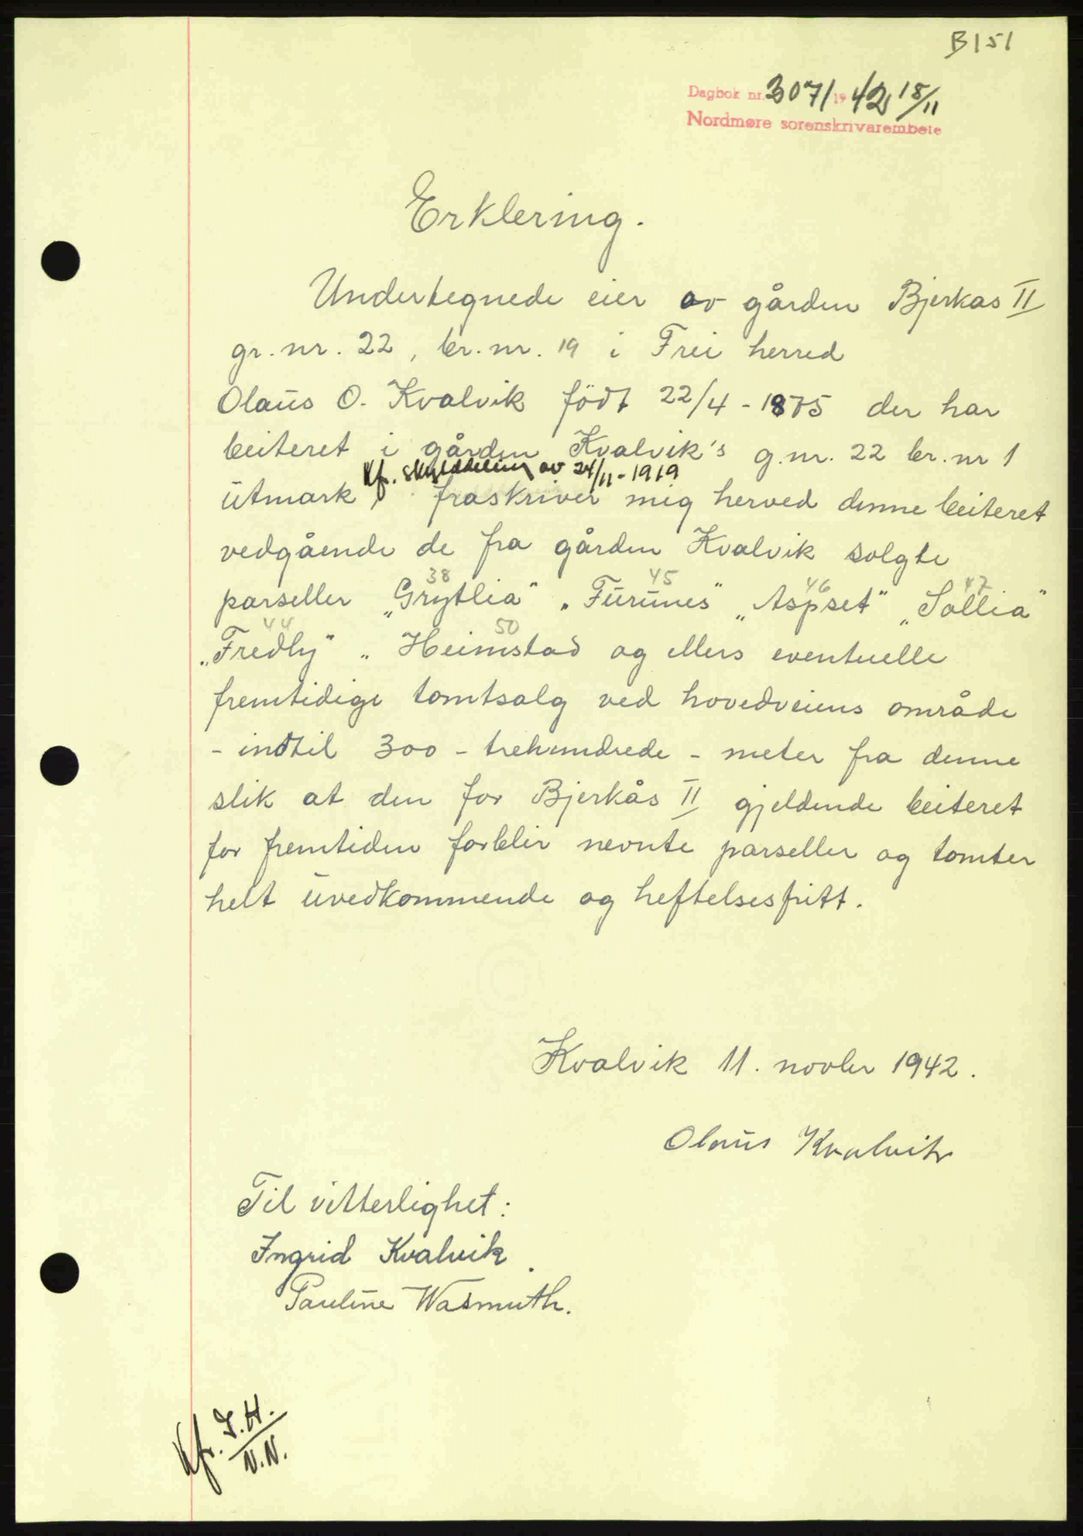 B151
Dagbok nr. 3071 1942 18/11
Nordmøre sorenskrivarembete
Erklering.
Undertegnede eier av gården Bjerkås II
gr. nr. 22, br. nr. 19 i Frei herred
Olaus O. Kvalvik født 22/4 - 1875 der har
beiteret i gården Kvalvik's g. nr. 22 br. nr 1
Kfr. skylddeling av 24/11 - 1919
utmark, fraskriver mig herved denne beiteret
vedgående de fra gården Kvalvik solgte
38 45 46 47
parseller „Grytlia" „Furunes" „Aspset" „Sollia"
44 50
„Fredly" „Heimstad og ellers eventuelle
fremtidige tomtsalg ved hovedveiens område
- indtil 300 - trehundrede - meter fra denne
slik at den for Bjerkås II gjeldende beiteret
for fremtiden forblir nevnte parseller og tomter
helt uvedkommende og heftelsesfritt.
Kvalvik 11. novbr 1942.
Olaus Kvalvik
Til vitterlighet:
Ingrid Kvalvik.
Pauline Wasmuth.
Kfr. J.H.
N.N.